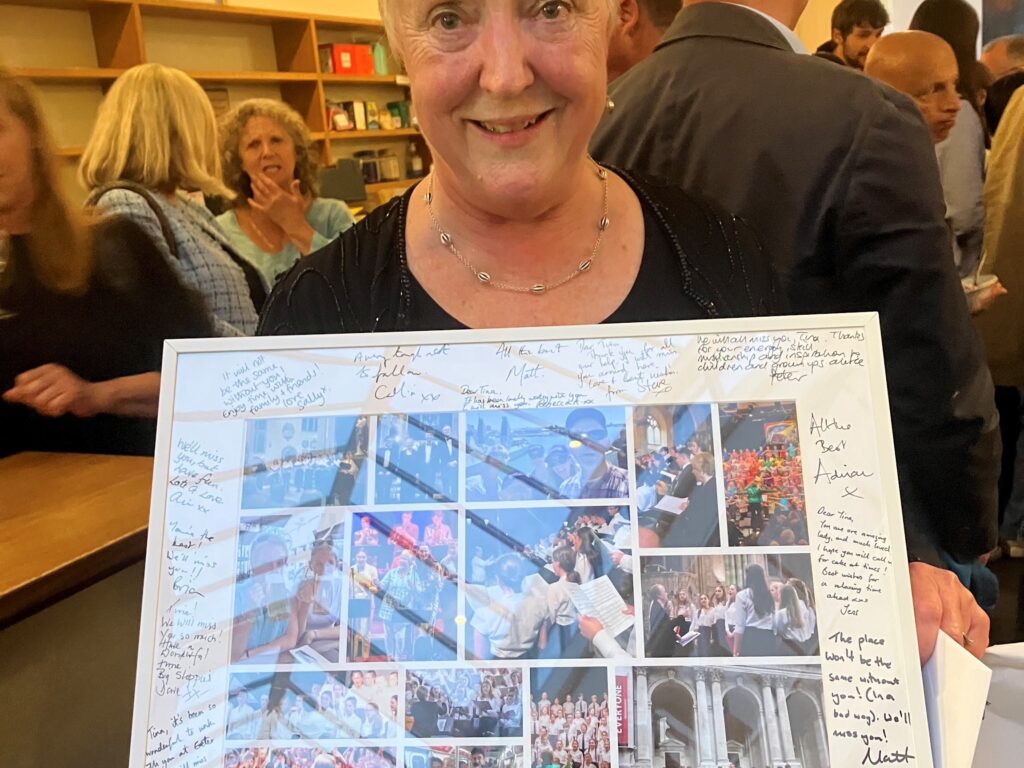 It will not
be the same
without you!
Enjoy time with
family & friends!
love
Sally x
A very tough act
to follow.
Colin xx
All the best
Matt.
Dear Tina,
Thank you for all
from Steve
Dear Tina,
It has been lovely working with you
will miss you. Rebecca xx
We will all miss you, Tina. Thanks
for your energy, skill
musicianship and inspiration to
children and grown ups alike
Peter
We'll miss
you, but
have fun
Lots of Love
xx
You're the
best!
We'll miss
you!!
Tina!
We will miss
you so much!
Have a
Wonderful
time!
Big
xx
Tina, it's been so
wonderful to work
with you at Exeter
All the
Best
Adrian
x
Dear Tina,
You are an amazing
lady, and much loved
I hope you will call in
for cake at times!
Best wishes for
a relaxing time
ahead
Jens
The place
won't be the
same without
you! (In a
bad way). We'll
miss you!
Matt
EVERYONE